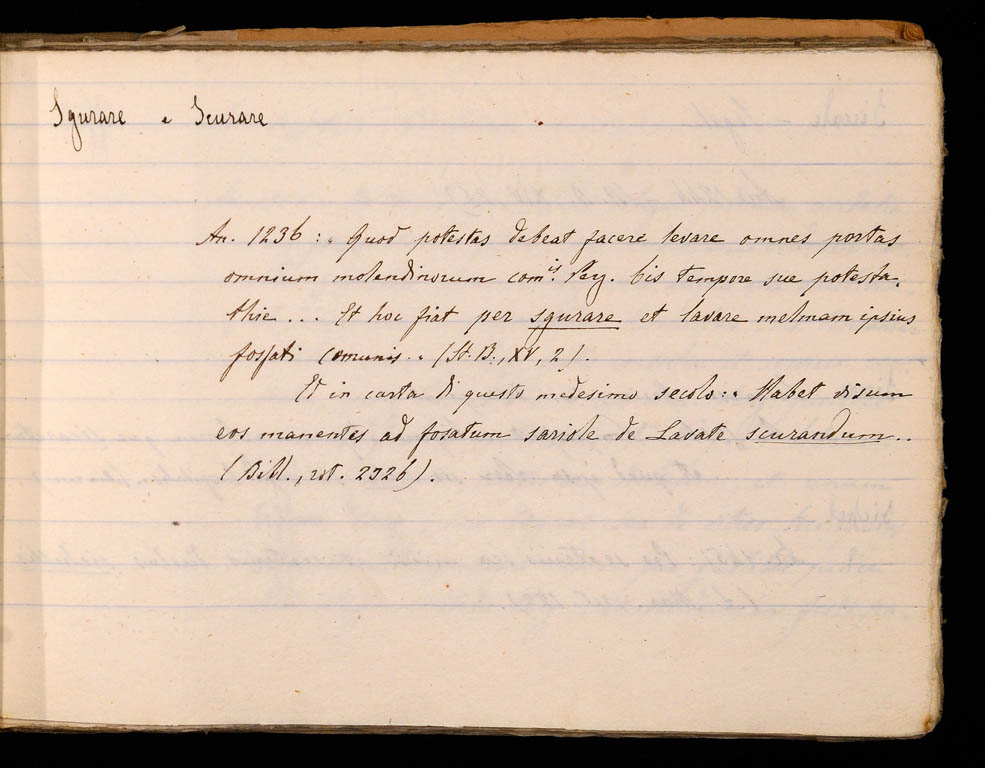 Sgurare e Scurare
An. 1236 : " Quod potestas debeat facere levare omnes portas
omnium molendinorum com.is Perg. bis tempore sue potesta-
thie ... Et hoc fiat per sgurare et lavare melmam ipsius
fossati comunis. " (St. B., XV, 2).
Et in carta di questo medesimo secolo : " Habet
eos manentes ad fosatum sariole de Lavate scurandum ..
(Bibl., rot. 2326).